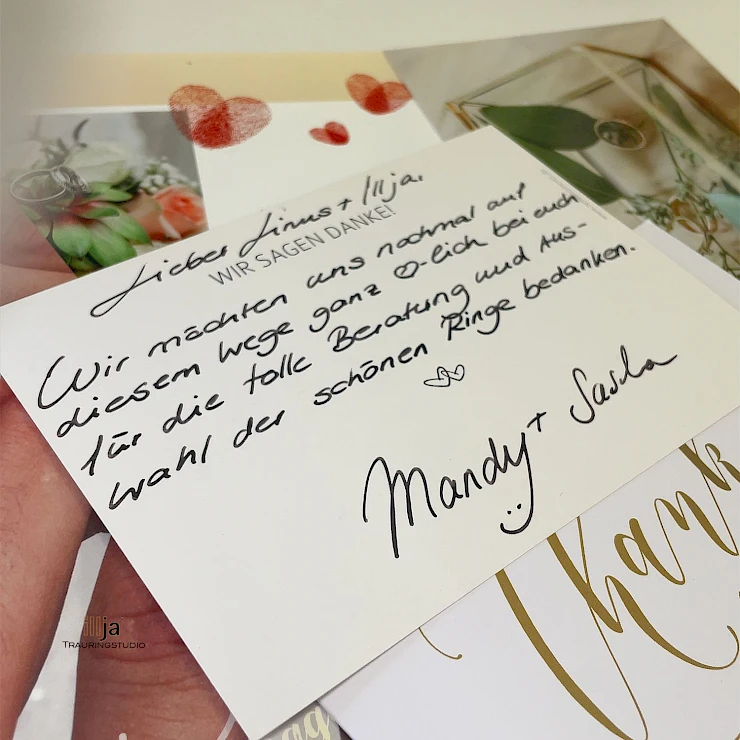 Lieber Linus + Illja,
WIR SAGEN DANKE!
Wir möchten uns nochmal auf
diesem Wege ganz ♡-lich bei euch
für die tolle Beratung und Aus-
wahl der schönen Ringe bedanken.
Mandy + Sascha
Thank
ja
TRAURINGSTUDIO